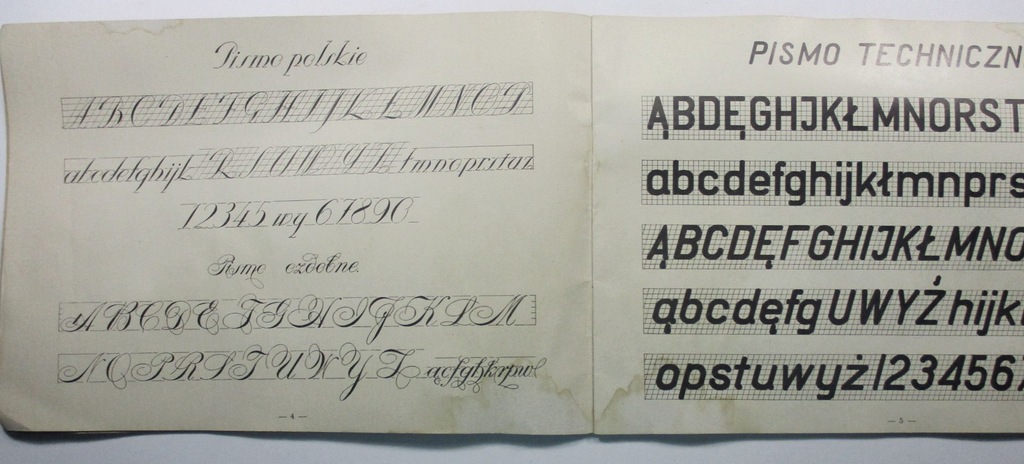 Pismo polskie
ABCDEFGHIJKLŁMNOP
abcdefghijkl RSTUWYZ łmnoprstuz
12345 wg 67890
Pismo ozdobne.
ABCDEFGHIJKLM
NOPRSTUWYZ
— 4 —
PISMO TECHNICZN
ĄBDĘGHJKŁMNORST
abcdefghijkłmnprs
ĄBCDĘFGHIJKŁMNO
ąbcdęfgUWYŻhijk
opstuwyż1234567
— 5 —